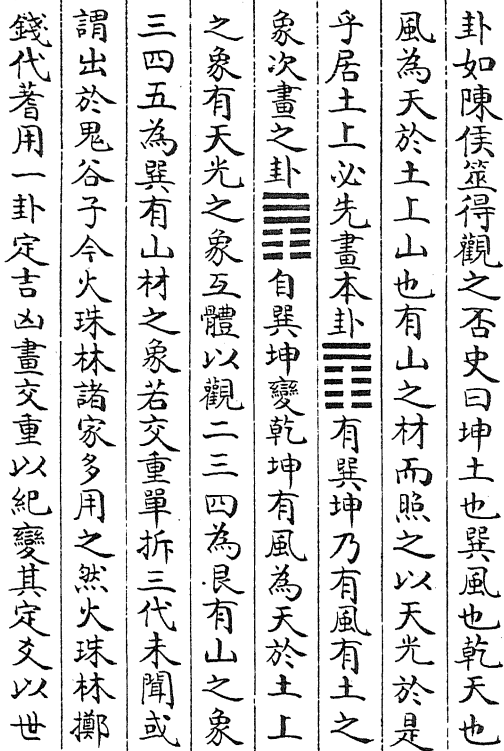 卦如陳侯筮得觀之否史曰坤土也巽風也乾天也
風為天於土上山也有山之材而照之以天光於是
乎居土上必先畫本卦䷓有巽坤乃有風有土之
象次畫之卦䷋自巽坤變乾坤有風為天於土上
之象有天光之象互體以觀二三四為艮有山之象
三四五為巽有山材之象若交重單拆三代未聞或
謂出於鬼谷子今火珠林諸家多用之然火珠林擲
錢代蓍用一卦定吉凶畫交重以紀變其定爻以世